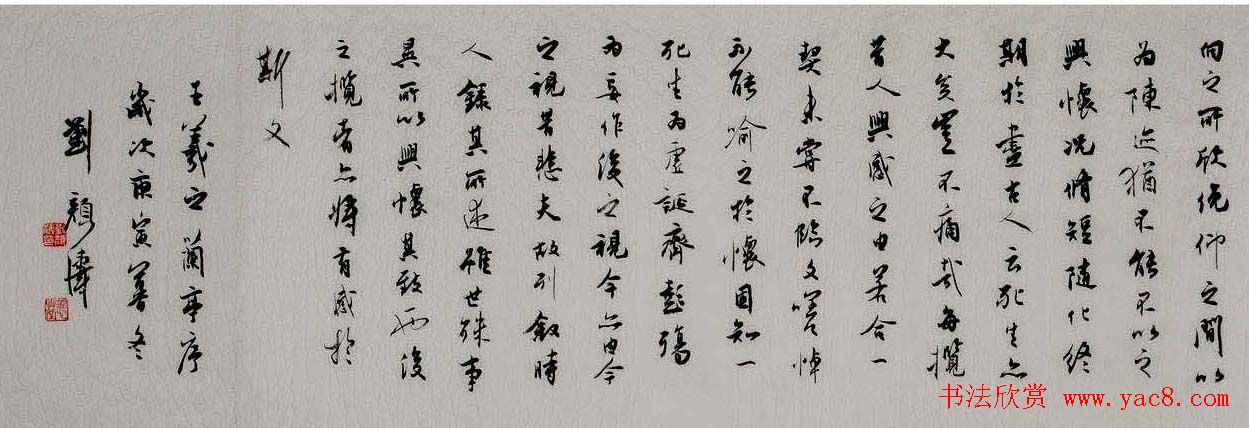 向之所欣俛仰之間以
為陳迹猶不能不以之
興懷況脩短隨化終
期於盡古人云死生亦
大矣豈不痛哉每攬
昔人興感之由若合一
契未嘗不臨文嗟悼
不能喻之於懷固知一
死生為虛誕齊彭殤
為妄作後之視今亦由今
之視昔悲夫故列敘時
人錄其所述雖世殊事
異所以興懷其致一也後
之攬者亦將有感於
斯文
王羲之蘭亭序
歲次庚寅暮冬
劉
书法欣赏 www.yac8.com